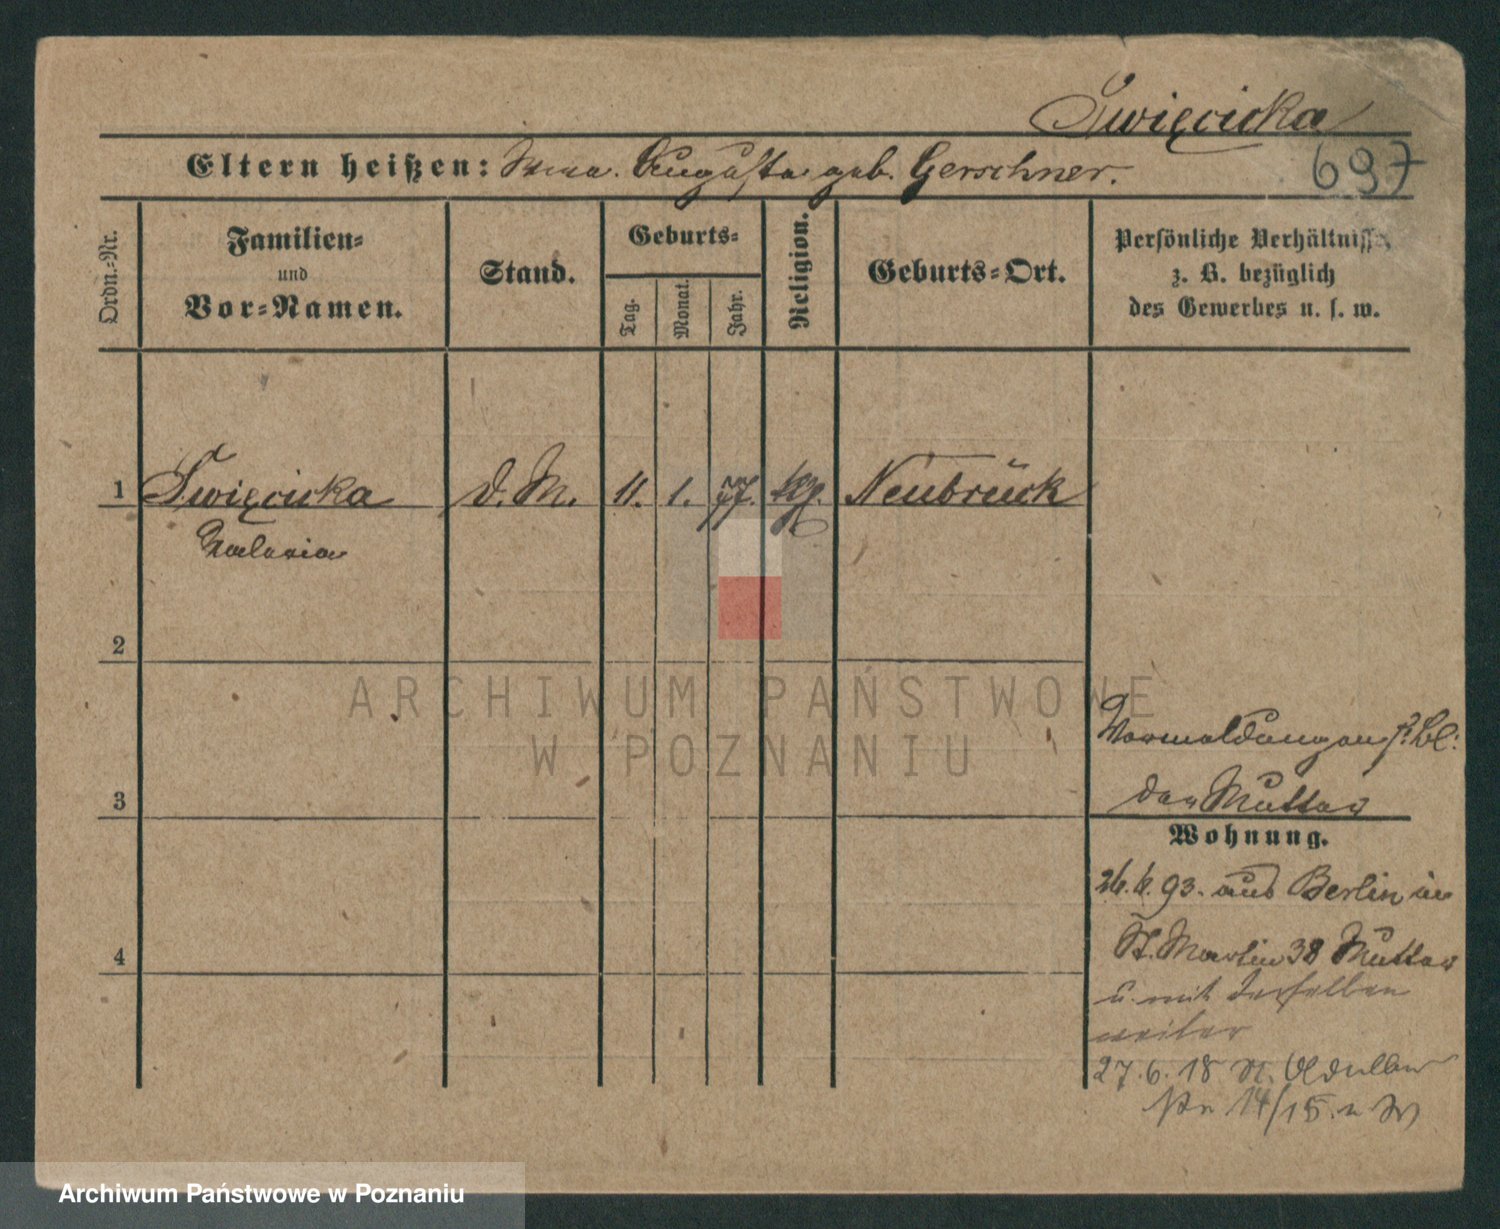 Święcicka
697
Eltern heißen: Wwe. Augusta geb. Gerschner.
Ordn.-Nr.
Familien-
und
Vor-Namen.
Stand.
Geburts-
Tag.
Monat.
Jahr.
Religion.
Geburts-Ort.
Persönliche Verhältnisse
z. B. bezüglich
des Gewerbes u. s. w.
1 Święcicka d. M. 11. 1. 77. Neubrück
Valeria
2
3
4
Vermeldungen
der Mutter
Wohnung.
26. 6. 93. aus Berlin in
St. Martin 38 Mutter
u. mit derselben
weiter
27. 6. 18 n.
14/15.
ARCHIWUM PAŃSTWOWE
W POZNANIU
Archiwum Państwowe w Poznaniu